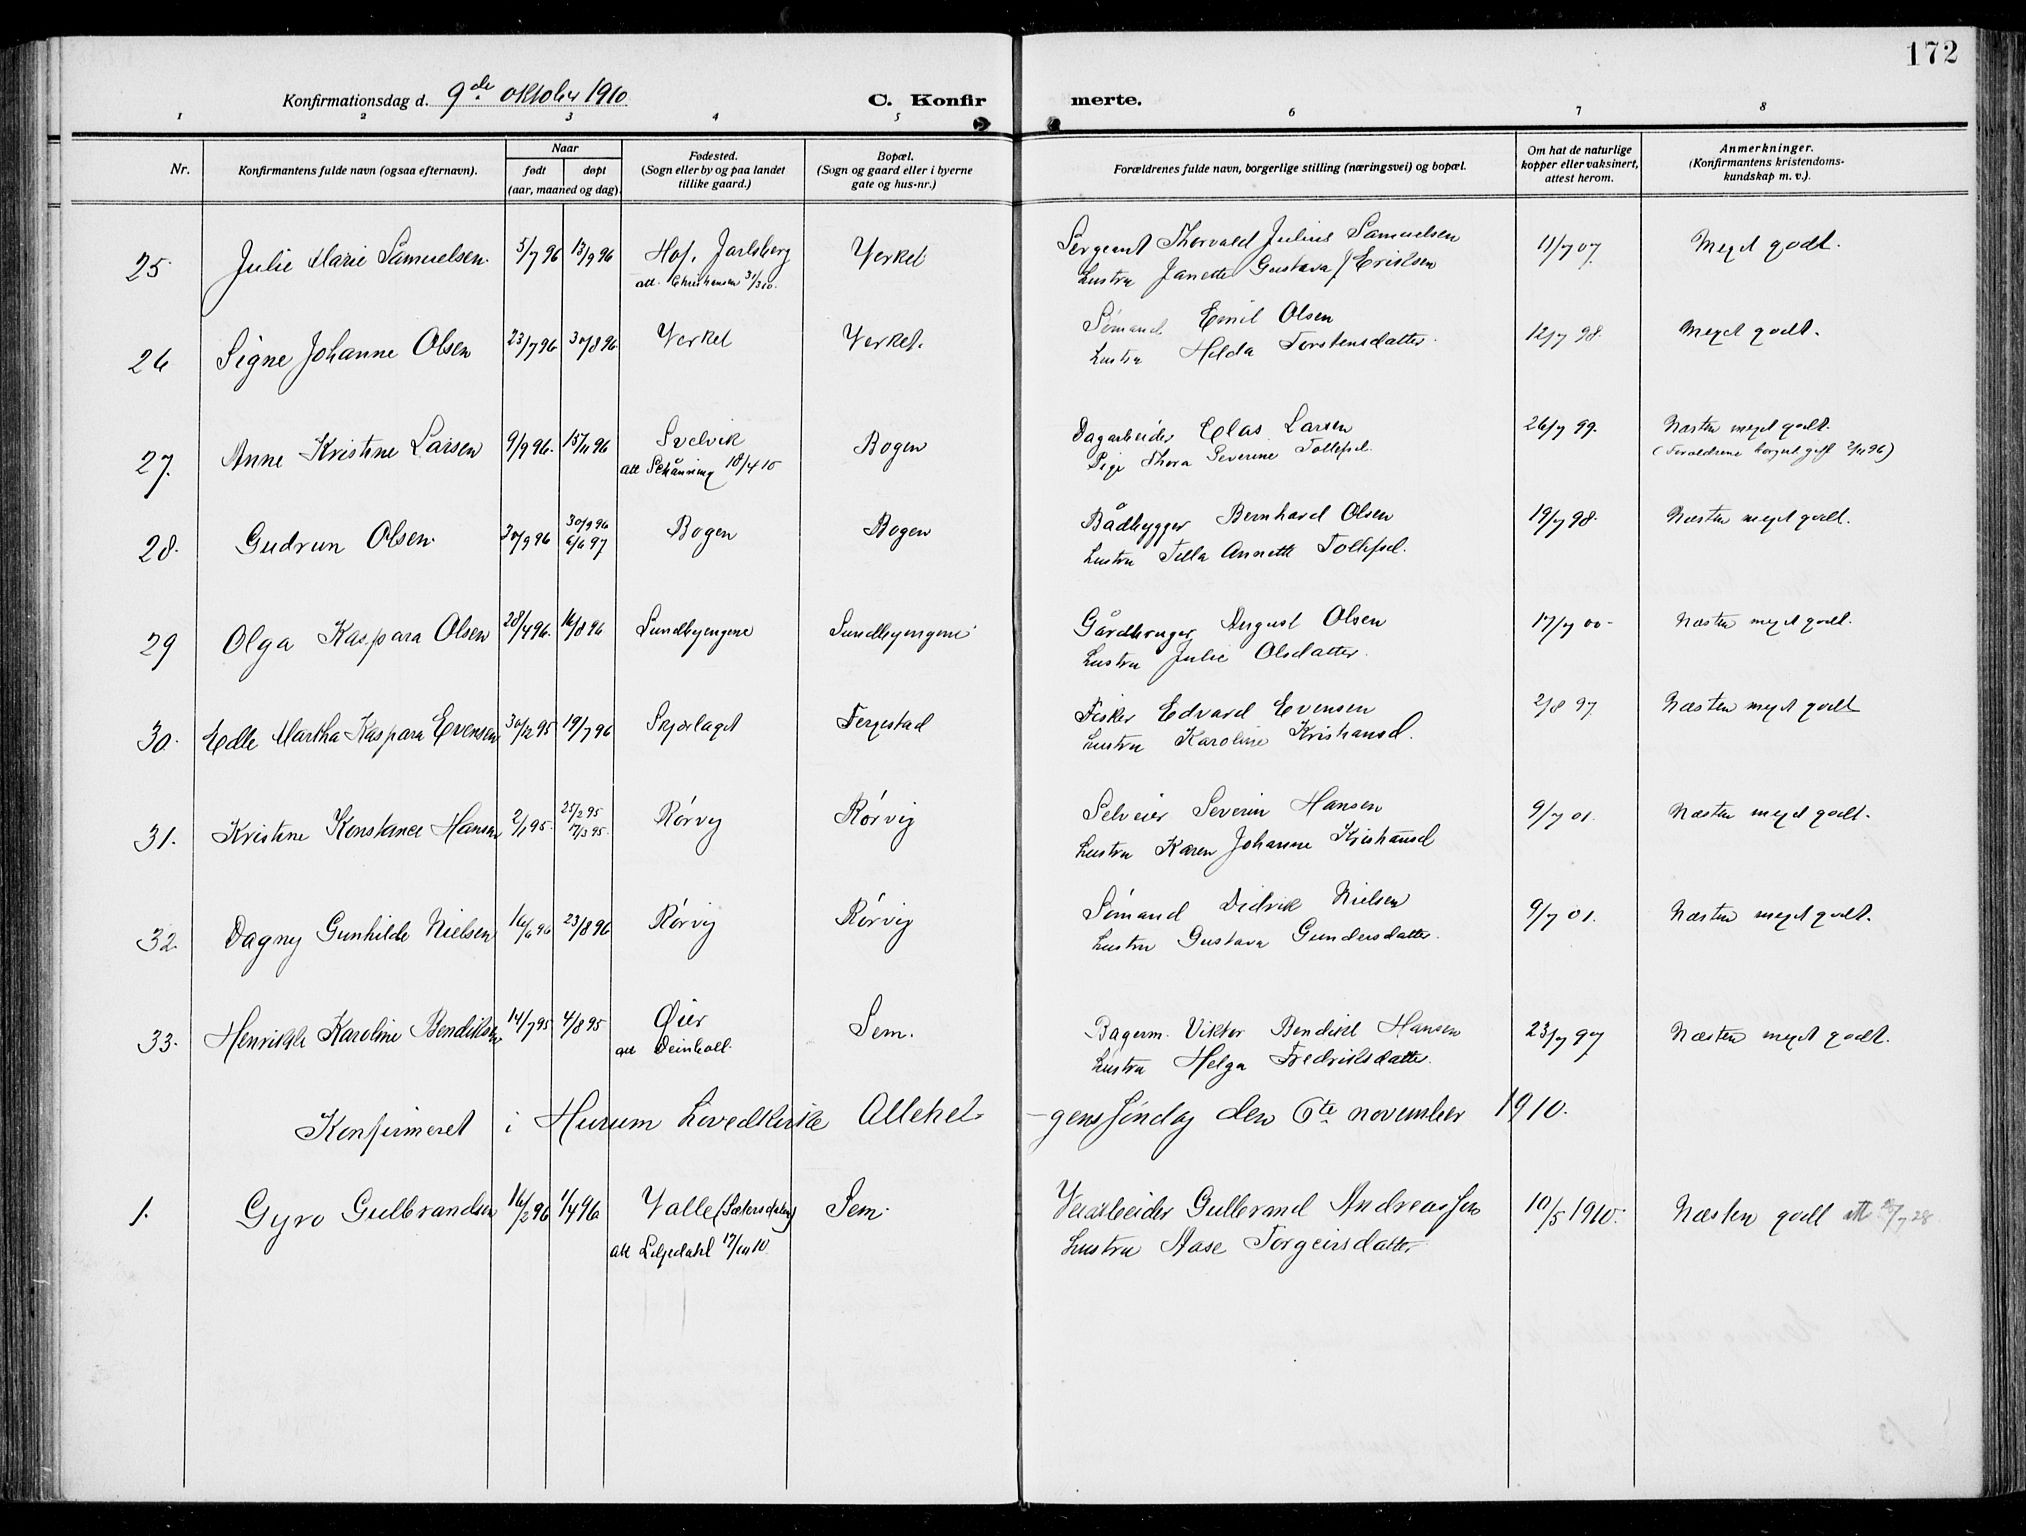 172
Konfirmationsdag d. 9de oktober 1910
C. Konfirmerte.
1 2 3 4 5 6 7 8
Nr.
Konfirmantens fulde navn (ogsaa efternavn).
Naar
født døpt
(aar, maaned og dag)
Fødested.
(Sogn eller by og paa landet
tillike gaard.)
Bopæl.
(Sogn og gaard eller i byerne
gate og hus-nr.)
Forældrenes fulde navn, borgerlige stilling (næringsvei) og bopæl.
Om hat de naturlige
kopper eller vaksinert,
attest herom.
Anmerkninger.
(Konfirmantens kristendoms-
kundskap m. v.).
25 Julie Marie Samuelsen 5/7 96 13/9 96 Hof, Jarlsberg Verket Sergeant Thorvald Julius Samuelsen 11/7 07. Meget godt.
att. Christiansen 31/3 10. Hustru Janette Gustava Eriksen
26 Signe Johanne Olsen 23/7 96 30/8 96 Verket Verket. Sømand Emil Olsen 12/7 98. Meget godt.
Hustru Hilda Torstensdatter.
27. Anne Kristine Larsen 9/9 96. 15/11 96 Svelvik Bogen Dagarbeider Olas Larsen 26/7 99. Næsten meget godt.
att Schånning 18/4 10 Pige Thora Severine Tollefsd. (Forældrene borgerl. gift 2/11 96)
28. Gudrun Olsen 30/9 96 30/9 96 Bogen Bogen Bådbygger Bernhard Olsen 19/7 98. Næsten meget godt.
6/6 97 Hustru Tilla Annette Tollefsd.
29 Olga Kaspara Olsen 28/4 96. 16/8 96 Sundbyengene Sundbyengene Gårdbruger August Olsen 17/7 00. Næsten meget godt.
Hustru Julie Olsdatter.
30. Edle Martha Kaspara Evensen 30/12 95 19/7 96 Skjørlaget Ferjestad Fisker Edvard Evensen 2/8 97 Næsten meget godt
Hustru Karoline Kristiansd.
31. Kristine Konstance Hansen 2/1 95. 25/2 95 Rørvig Rørvig Selveier Severin Hansen 9/7 01. Næsten meget godt.
17/3 95. Hustru Karen Johanne Kristiansd
32. Dagny Gunhilde Nielsen 16/6 96 23/8 96 Rørvig Rørvig Sømand Didrik Nielsen 9/7 01. Næsten meget godt.
Hustru Gustava Gundersdatter.
33. Henrikke Karoline Bendiksen 14/7 95 4/8 95 Øier Sem. Bagerm. Viktor Bendikt Hansen 23/7 97 Næsten meget godt.
att Deinboll. Hustru Helga Fredriksdatter.
Konfirmeret i Hurum hovedkirke Allehelgenssøndag den 6te november 1910.
1. Gyro Gulbrandsen 16/2 96 1/4 96 Valle (Sætersdalen) Sem. Veiarbeider Gulbrand Andreassen 10/5 1910. Næsten godt att 7 28.
att Liljedahl 17/10 10. Hustru Aase Torgeirsdatter